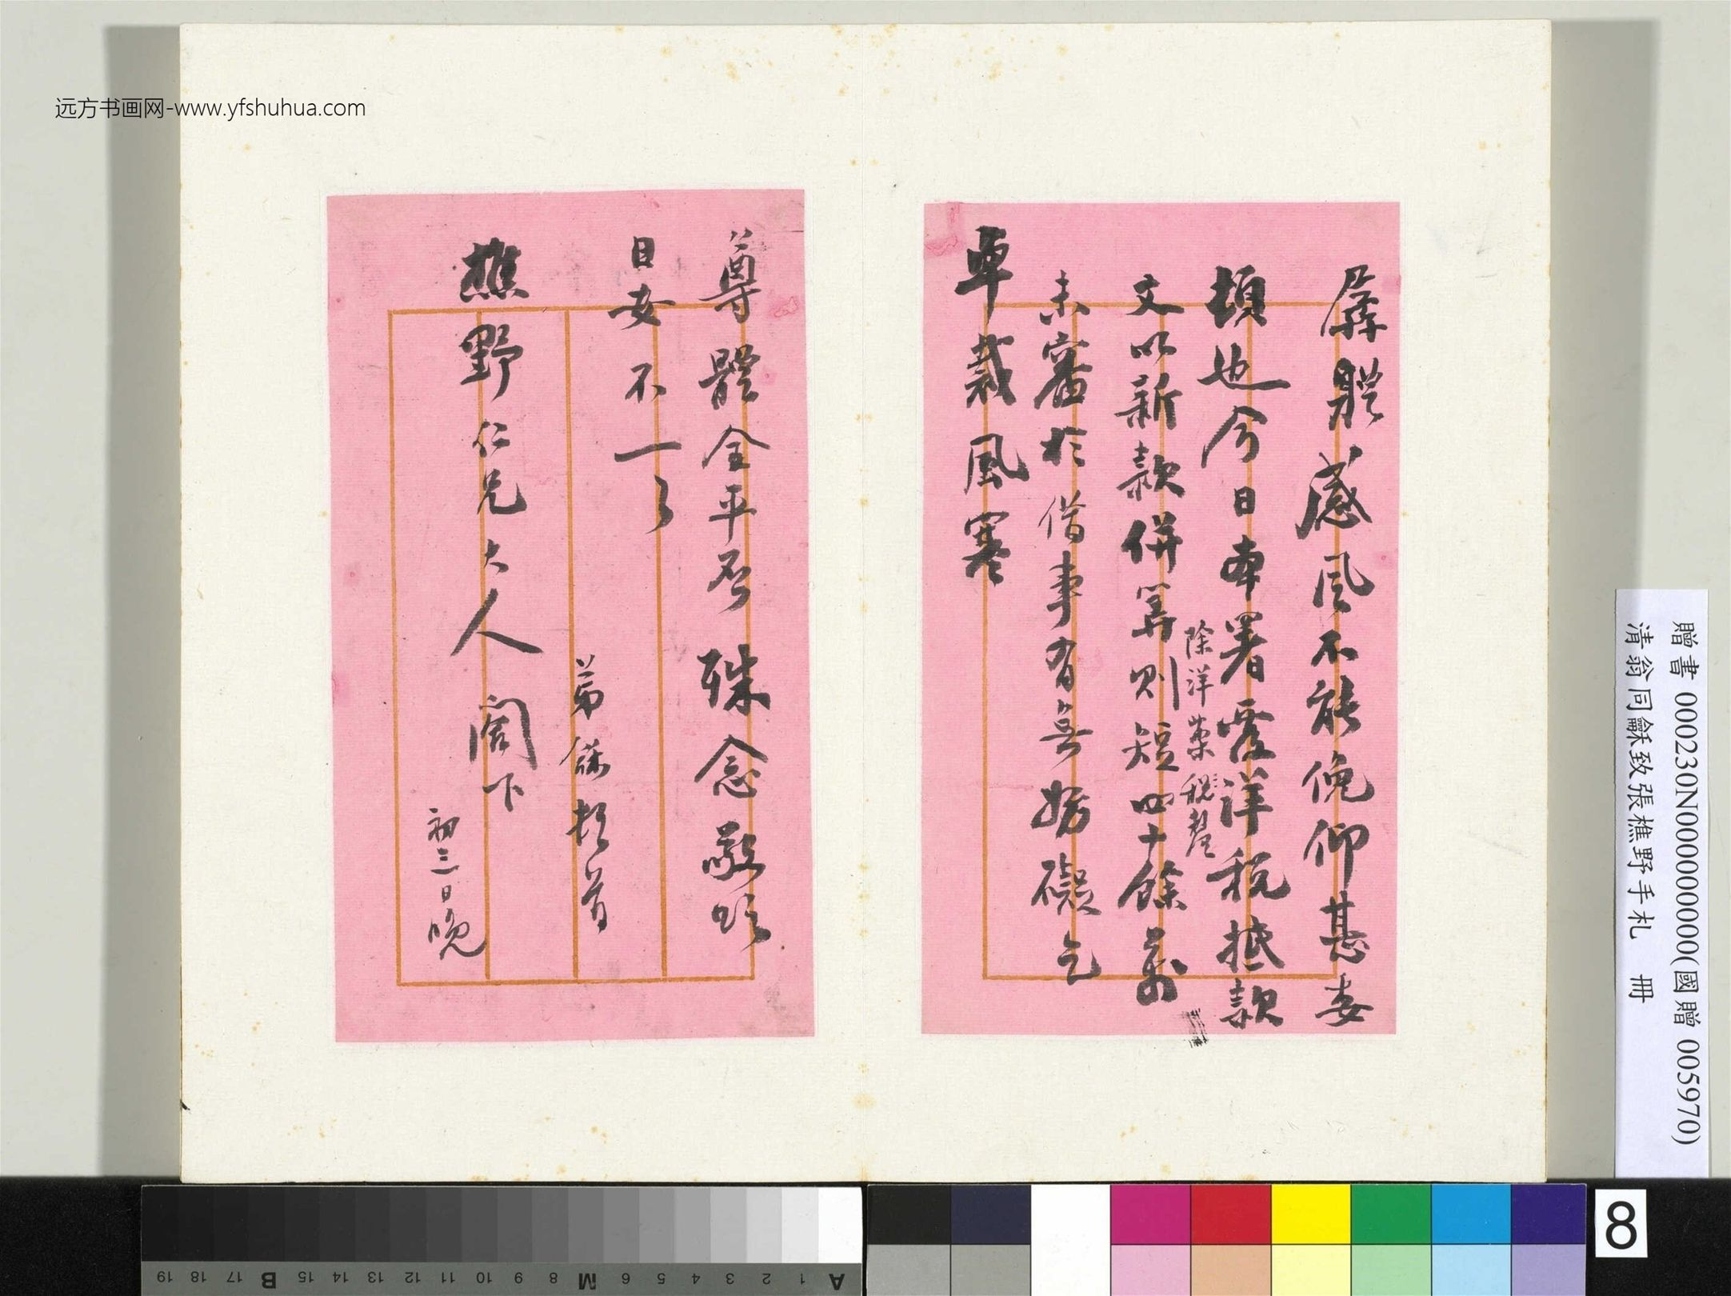 孱軀感風不能俛仰甚委
頓也今日奉署覆洋稅抵款
除洋藥稅釐
文以新款併算則短四十餘萬
未審於借事有無妨礙乞
卓裁風寒
尊體全平否殊念敬頌
日安不一一
弟龢頓首
樵野仁兄大人閣下
初三日晚
贈書 000230N000000000(國贈 005970)
清翁同龢致張樵野手札 冊
远方书画网-www.yfshuhua.com
8
A 1 2 3 4 5 6 M 8 9 10 11 12 13 14 15 B 17 18 19